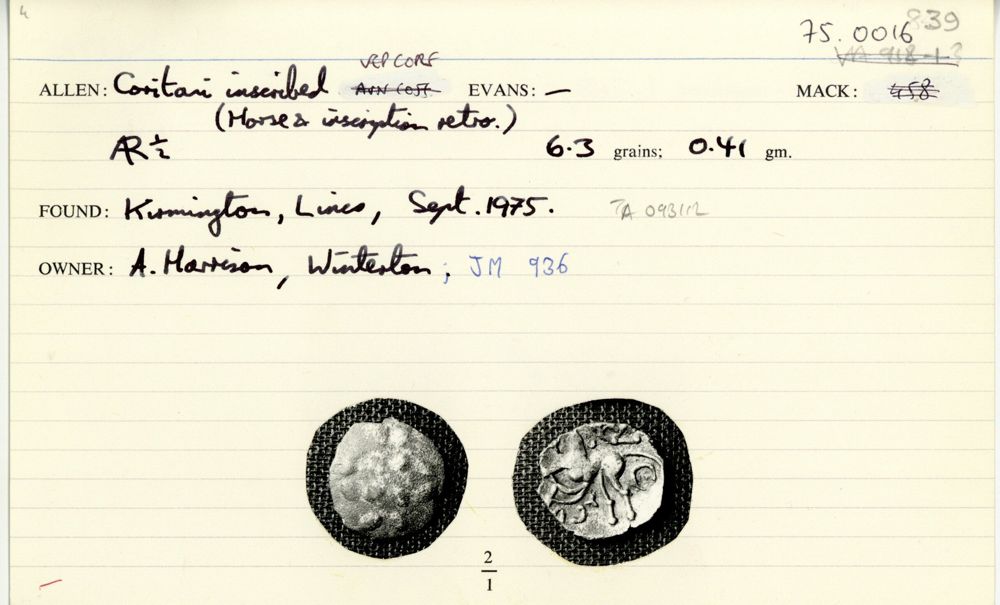 4
75.0016 839
VA 918-13
VEP CORF
ALLEN: Coritani inscribed AVN COST EVANS: — MACK: 458
(Horse & inscription retro.)
AR ½ 6.3 grains; 0.41 gm.
FOUND: Kirmington, Lincs, Sept. 1975. TA 093112
OWNER: A. Harrison, Winterton; JM 936
2
1